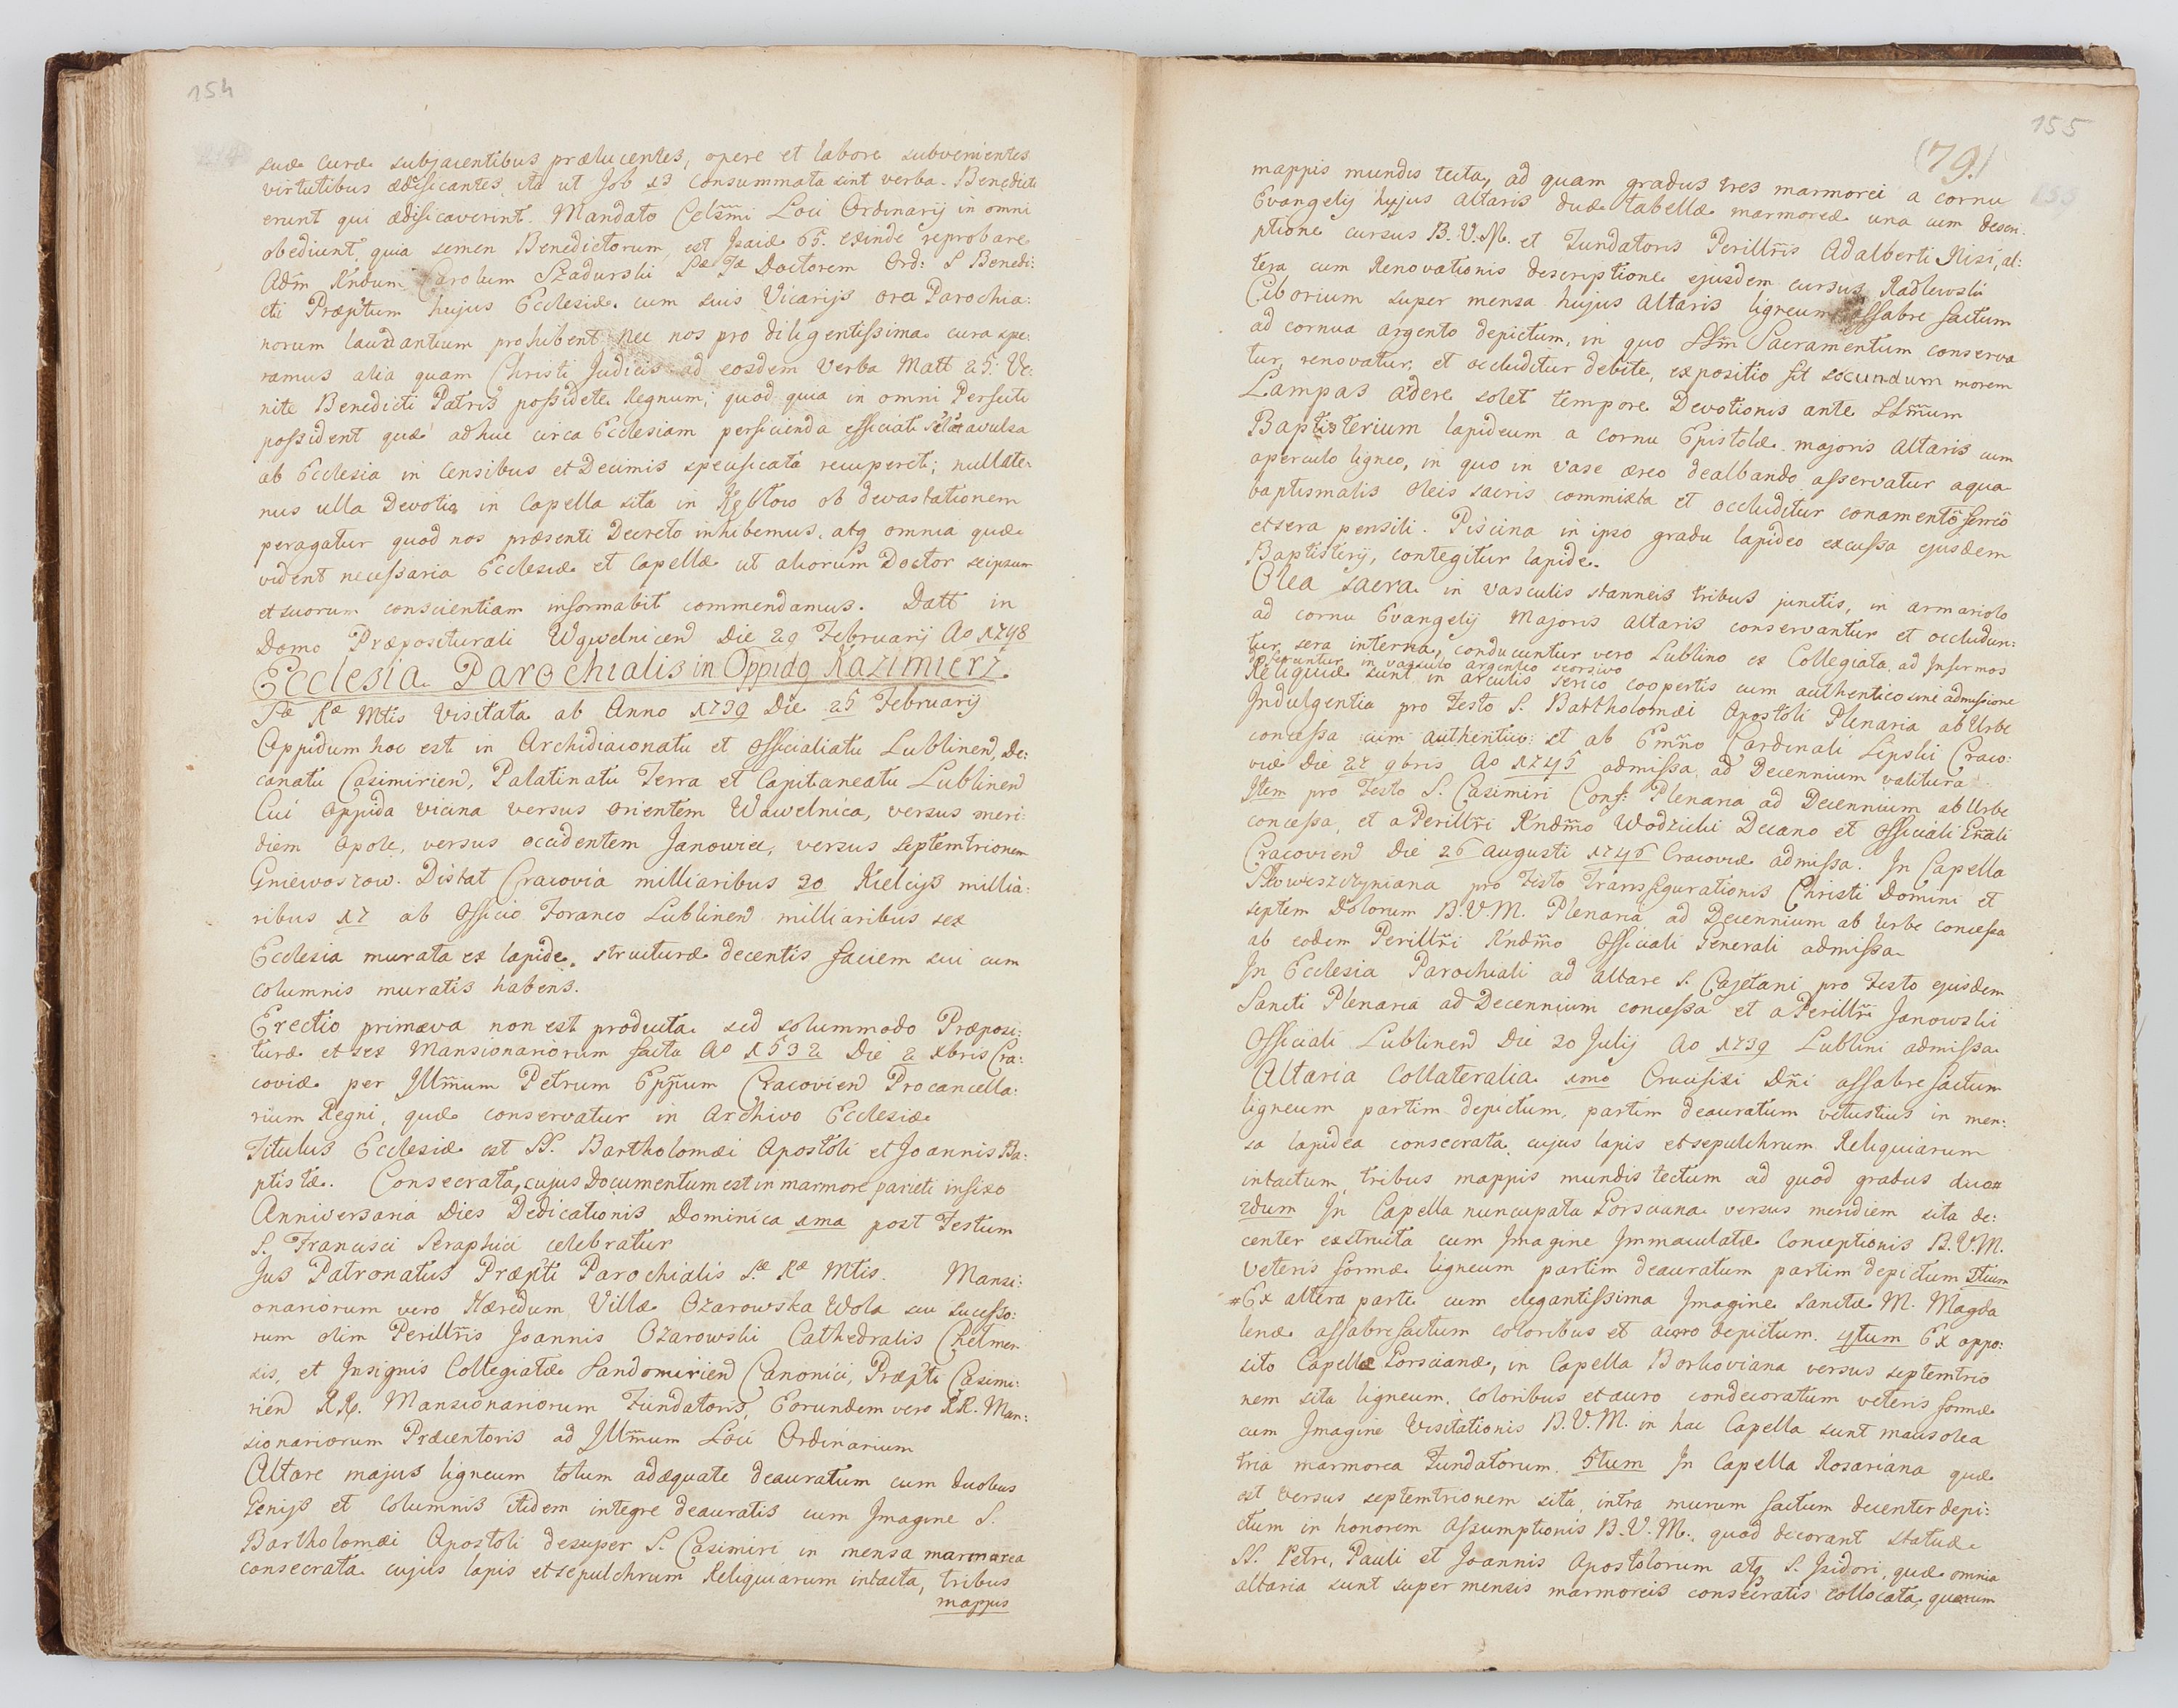 154
suæ curæ subjacentibus prælucentes, opere et labore subvenientes
virtutibus ædificantes, ita ut Job 13 consummata sint verba. Benedicti
erunt qui ædificaverint. Mandato Cels̃mi Loci Ordinarij in omni
obediunt, quia semen Benedictorum est Isaiæ 65. exinde reprobare
Adm̃ Rñdum Carolum Szadurski Sæ Tæ Doctorem Ord: S Benedi:
cti Præptum hujus Ecclesiæ cum suis Vicarijs ora Parochia:
norum laudantium prohibent nec nos pro diligentissima cura spe:
ramus alia quam Christi Judicis ad eosdem verba Matt 25. Ve:
nite Benedicti Patris possidete Regnum; quod quia in omni Perfecti
possident quæ adhuc circa Ecclesiam perficienda efficiat avulsa
ab Ecclesia in Censibus et Decimis specificata recuperet; nullate:
nus ulla Devotio in Capella sita in Kębłow ob devastationem
peragatur quod nos præsenti Decreto inhibemus, atq omnia quæ
vident necessaria Ecclesiæ et Capellæ ut aliorum Doctor seipsum
et suorum conscientiam informabit commendamus. Datt in
Domo Præpositurali Wąwelnicen Die 29 Februarij Ao 1748
Ecclesia Parochialis in Oppido Kazimierz
Sæ Ræ Mtis Visitata ab Anno 1739 Die 25 Februarij
Oppidum hoc est in Archidiaconatu et Officialiatu Lublinen, De:
canatu Casimirien, Palatinatu Terra et Capitaneatu Lublinen
Cui Oppida vicina versus orientem Wąwelnica, versus meri:
diem Opole, versus occidentem Janowiec, versus septemtrionem
Gniewoszow. Distat Cracovia milliaribus 20 Kielcijs millia:
ribus 17 ab Officio Foraneo Lublinen milliaribus sex
Ecclesia murata ex lapide, structuræ decentis faciem sui cum
columnis muratis habens.
Erectio primæva non est producta sed solummodo Præposi:
turæ et sex Mansionariorum facta Ao 1532 Die 2 Xbris Cra:
coviæ per Illm̃um Petrum Epp̃um Cracovien Procancella:
rium Regni, quæ conservatur in Archivo Ecclesiæ
Titulus Ecclesiæ est SS. Bartholomæi Apostoli et Joannis Ba:
ptistæ. Consecrata, cujus Documentum est in marmore parieti infixo
Anniversaria Dies Dedicationis Dominica 1ma post Festum
S. Francisci Seraphici celebratur
Jus Patronatus Præpti Parochialis S.æ Ræ Mtis. Mansi:
onariorum vero Hæredum Villæ Ozarowska Wola seu sucesso:
rum olim Perillr̃is Joannis Ozarowski Cathedralis Chelmen
sis, et Insignis Collegiatæ Sandomirien Canonici, Præpti Casimi:
rien RR. Mansionariorum Fundatoris, Eorundem vero RR. Man:
sionariorum Præcentoris ad Illm̃um Loci Ordinarium
Altare majus ligneum totum adæquate deauratum cum duobus
Genijs et Columnis itidem integre deauratis cum Imagine S.
Bartholomæi Apostoli desuper S. Casimiri in mensa marmorea
consecrata cujus lapis et sepulchrum Reliquiarum intacta, tribus
mappis
155
(79.)
mappis mundis tecta, ad quam gradus tres marmorei a cornu
Evangelij hujus Altaris duæ tabellæ marmoreæ una cum descri
ptione cursus B.V.M. et Fundatoris Perillr̃is Adalberti Nisi, al:
tera cum Renovationis descriptione ejusdem cursus Radlewski
Ciborium super mensa hujus Altaris ligneum affabre factum
ad cornua argento depictum, in quo SSm̃ Sacramentum conserva
tur, renovatur, et occluditur debite, expositio fit secundum morem
Lampas ardere solet tempore Devotionis ante SSm̃um
Baptisterium lapideum a cornu Epistolæ majoris Altaris cum
aperculo ligneo, in quo in vase æreo dealbando asservatur aqua
baptismalis Oleis sacris commixta et occluditur conamento ferreo
et sera pensili. Piscina in ipso gradu lapideo excussa ejusdem
Baptisterij, contegitur lapide.
Olea sacra in vasculis stanneis tribus junctis, in armariolo
ad cornu Evangelij Majoris Altaris conservantur et occludun:
tur sera interna, conducuntur vero Lublino ex Collegiata, ad Infirmos
deferuntur in vasculo argenteo seorsivo
Reliquiæ sunt in arculis serico coopertis cum authentico sine admissione
Indulgentia pro Festo S. Bartholomæi Apostoli Plenaria ab Urbe
concessa cum authentico: et ab Em̃no Cardinali Lipski Craco:
viæ Die 27 9bris Ao 1745 admissa, ad Decennium valitura
Item pro Festo S. Casimiri Conf: Plenaria ad Decennium ab Urbe
concessa, et a Perillr̃i Rndm̃o Wodzicki Decano et Officiali Gñali
Cracovien Die 26 Augusti 1746 Cracoviæ admissa. In Capella
Słoweszczyniana pro Festo Transfigurationis Christi Domini et
septem Dolorum B.V.M. Plenaria ad Decennium ab Urbe concessa
ab eodem Perillr̃i Rndm̃o Officiali Generali admissa
In Ecclesia Parochiali ad altare S. Cajetani pro Festo ejusdem
Sancti Plenaria ad Decennium concessa et a Perillr̃i Janowski
Officiali Lublinen Die 20 Julij Ao 1739 Lublini admissa
Altaria Collateralia 1mo Crucifixi Dñi affabre factum
ligneum partim depictum, partim deauratum vetustius in men:
sa lapidea consecrata, cujus lapis et sepulchrum Reliquiarum
intactum, tribus mappis mundis tectum ad quod gradus duo #
2dum In Capella nuncupata Gorsciana versus meridiem sita de:
center exstructa cum Imagine Immaculatæ Conceptionis B.V.M.
veteris formæ ligneum partim deauratum partim depictum 3tium
# Ex altera parte cum elegantissima Imagine Sanctæ M. Magda
lenæ affabre factum coloribus et auro depictum. 4tum Ex oppo:
sito Capellæ Gorscianæ, in Capella Borkoviana versus septemtrio
nem sita ligneum, coloribus et auro condecoratum veteris formæ
cum Imagine Visitationis B.V.M. in hac Capella sunt mausolea
tria marmorea Fundatorum. 5tum In Capella Rosariana quæ
est versus septemtrionem sita, intra murum factum decenter depi:
ctum in honorem Assumptionis B.V.M., quod decorant statuæ
SS. Petri, Pauli et Joannis Apostolorum atq S. Isidori, quæ omnia
altaria sunt super mensis marmoreis consecratis collocata, quorum